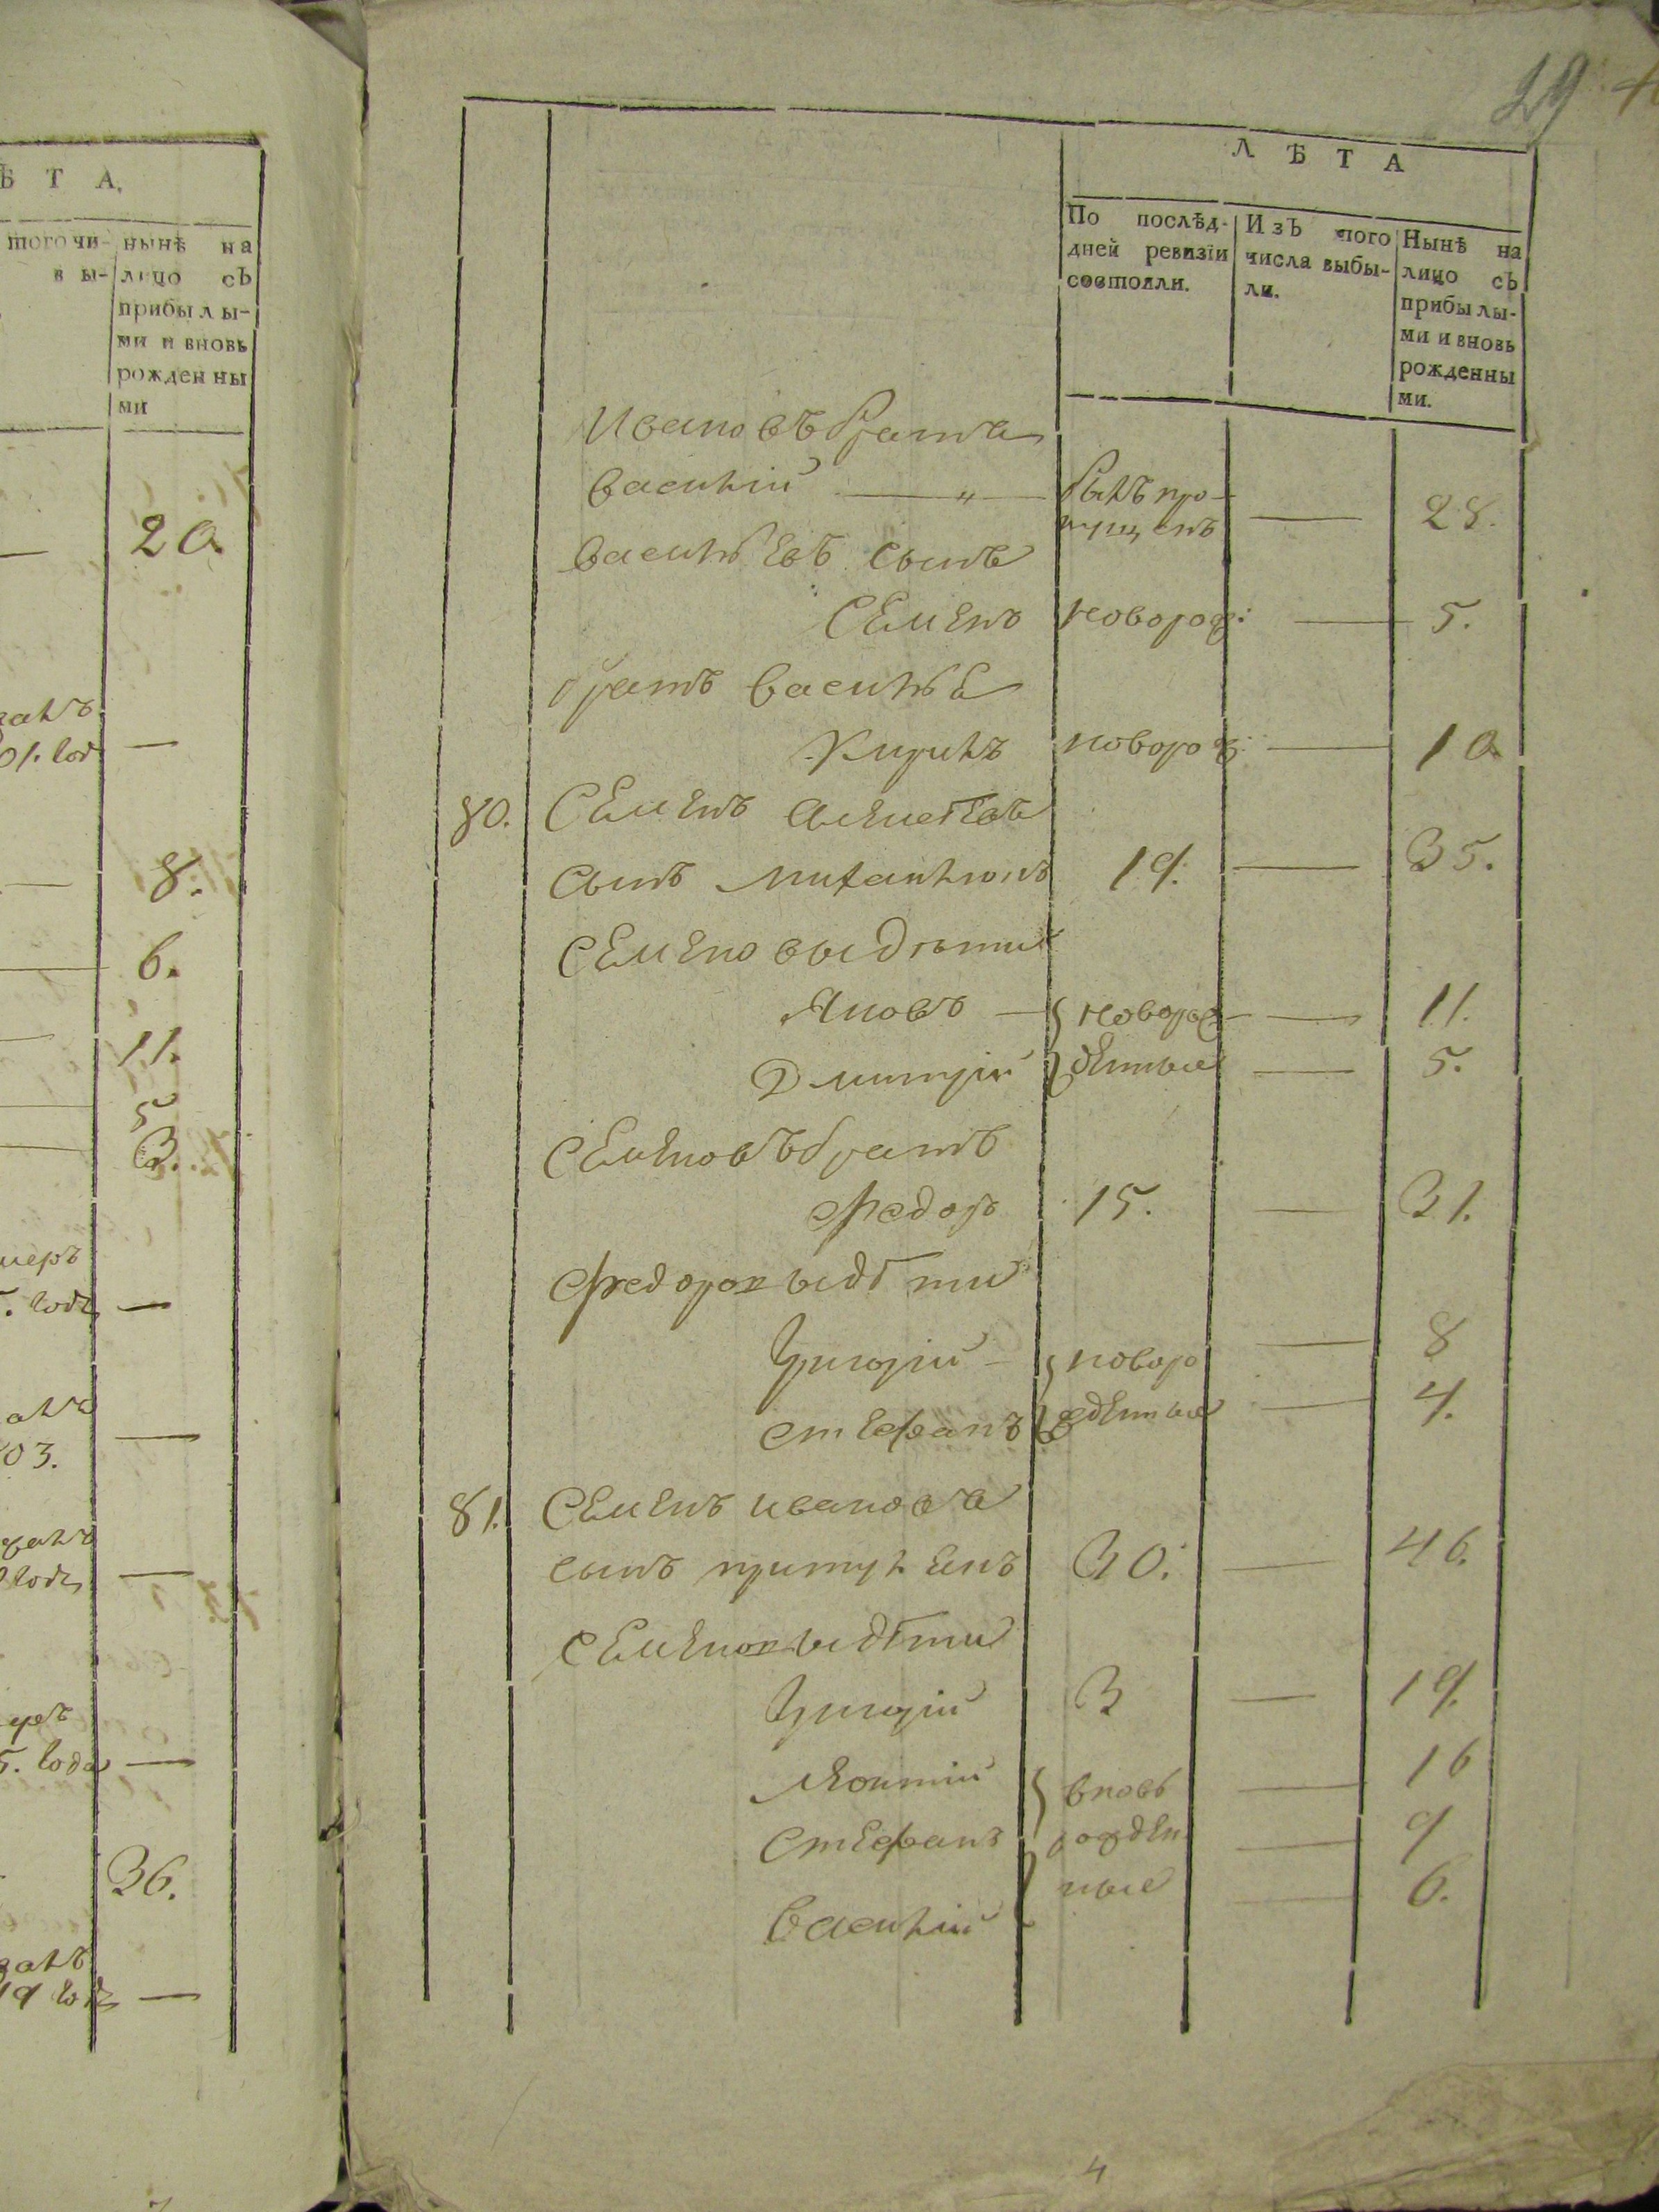 Ѣ Т А.
того чи-
в ы-
нынѣ на
лицо съ
прибылы-
ми и вновь
рожденны
ми
20.
01. год
8.
6.
11.
5
3.
меръ
. года
03.
5. года
36.
19 года
29
Л Ѣ Т А
По послѣд-
дней ревизіи
состояли.
Изъ того
числа выбы-
ли.
Нынѣ на
лицо съ
прибылы-
ми и вновь
рожденны
ми.
Ивановъ братъ
Василій — „ — былъ про- — 28.
пущенъ
Васильевъ сынъ
Семенъ новорож: — 5.
братъ Василья
Кирилъ новорож: — 10
80. Семенъ Алексѣевъ
сынъ 19. — 35.
Семеновы дѣти
Яковъ — новорож- — 11.
Дмитрій денные — 5.
Семеновъ братъ
Федоръ 15. — 31.
Федоровы дѣти
Григорій — новоро — 8
Стефанъ жденные — 4.
81. Семенъ Ивановъ
сынъ 30. — 46.
Семеновы дѣти
Григорій 3 — 19.
Леонтій вновь — 16
Стефанъ рожден — 9
Василій ные — 6.
4